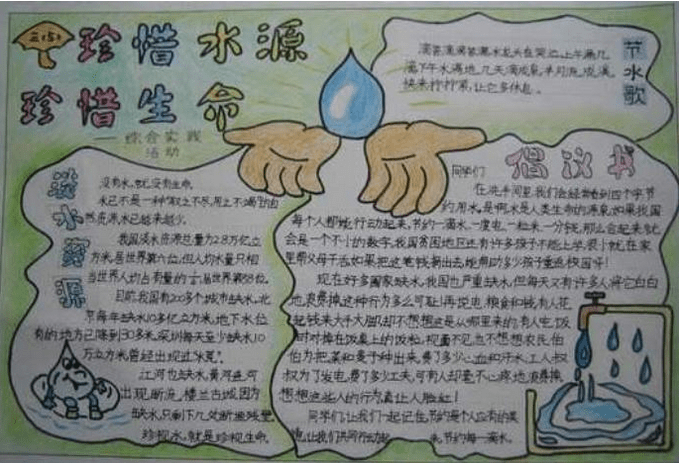 三(5)
珍惜水源
珍惜生命
——综合实践
活动
节水歌
滴答滴滴答漏水龙头在哭泣，上午漏几
滴下午水满地，几天滴成泉，半月流成溪，
快来拧拧紧，让它多休息。
淡水资源
没有水，就没有生命。
水已不是一种"取之不尽，用之不竭"的自
然资源，水已越来越少。
我国淡水资源总量为2.8万亿立
方米，居世界第六位，但人均水量只相
当世界人均占有量的居世界第88位。
目前，我国有200多个城市缺水，北
京每年缺水10多亿立方米，地下水位
有的地方已降到30多米，深圳每天至少缺水10
万立方米，曾经出现过水荒。
江河也缺水，黄河
出现断流，楼兰古城因为
缺水，只剩下几处断墙残壁。
珍视水，就是珍视生命。
倡议书
同学们
在洗手间里，我们会经常看到四个字节
约用水，是啊，水是人类生命的源泉，如果我国
每个人都能行动起来，节约一滴水、一度电、一粒米、一分钱，那么合起来就
会是一个不小的数字，我国贫困地区还有许多孩子不能上学，很小就在家
里帮父母干活，如果把这笔钱捐出去，能帮助多少孩子重返校园呀！
现在好多国家缺水，我国也严重缺水，但每天又有许多人将它白白
地浪费掉，这种行为多么可耻！再说电，粮食和钱，有人花
起钱来大手大脚，却不想想这是从哪里来的，有人吃饭
时对掉在饭桌上的饭粒，视而不见，也不想想农民伯
伯为把苗和麦子种出来，费了多少心血和汗水，工人叔
叔为了发电，费了多少工夫，可有人却毫不心疼地浪费掉，
想想这些人的行为真让人脸红！
同学们，让我们一起记住，节约是个人应有的美
德，让我们共同行动起来，节约每一滴水。